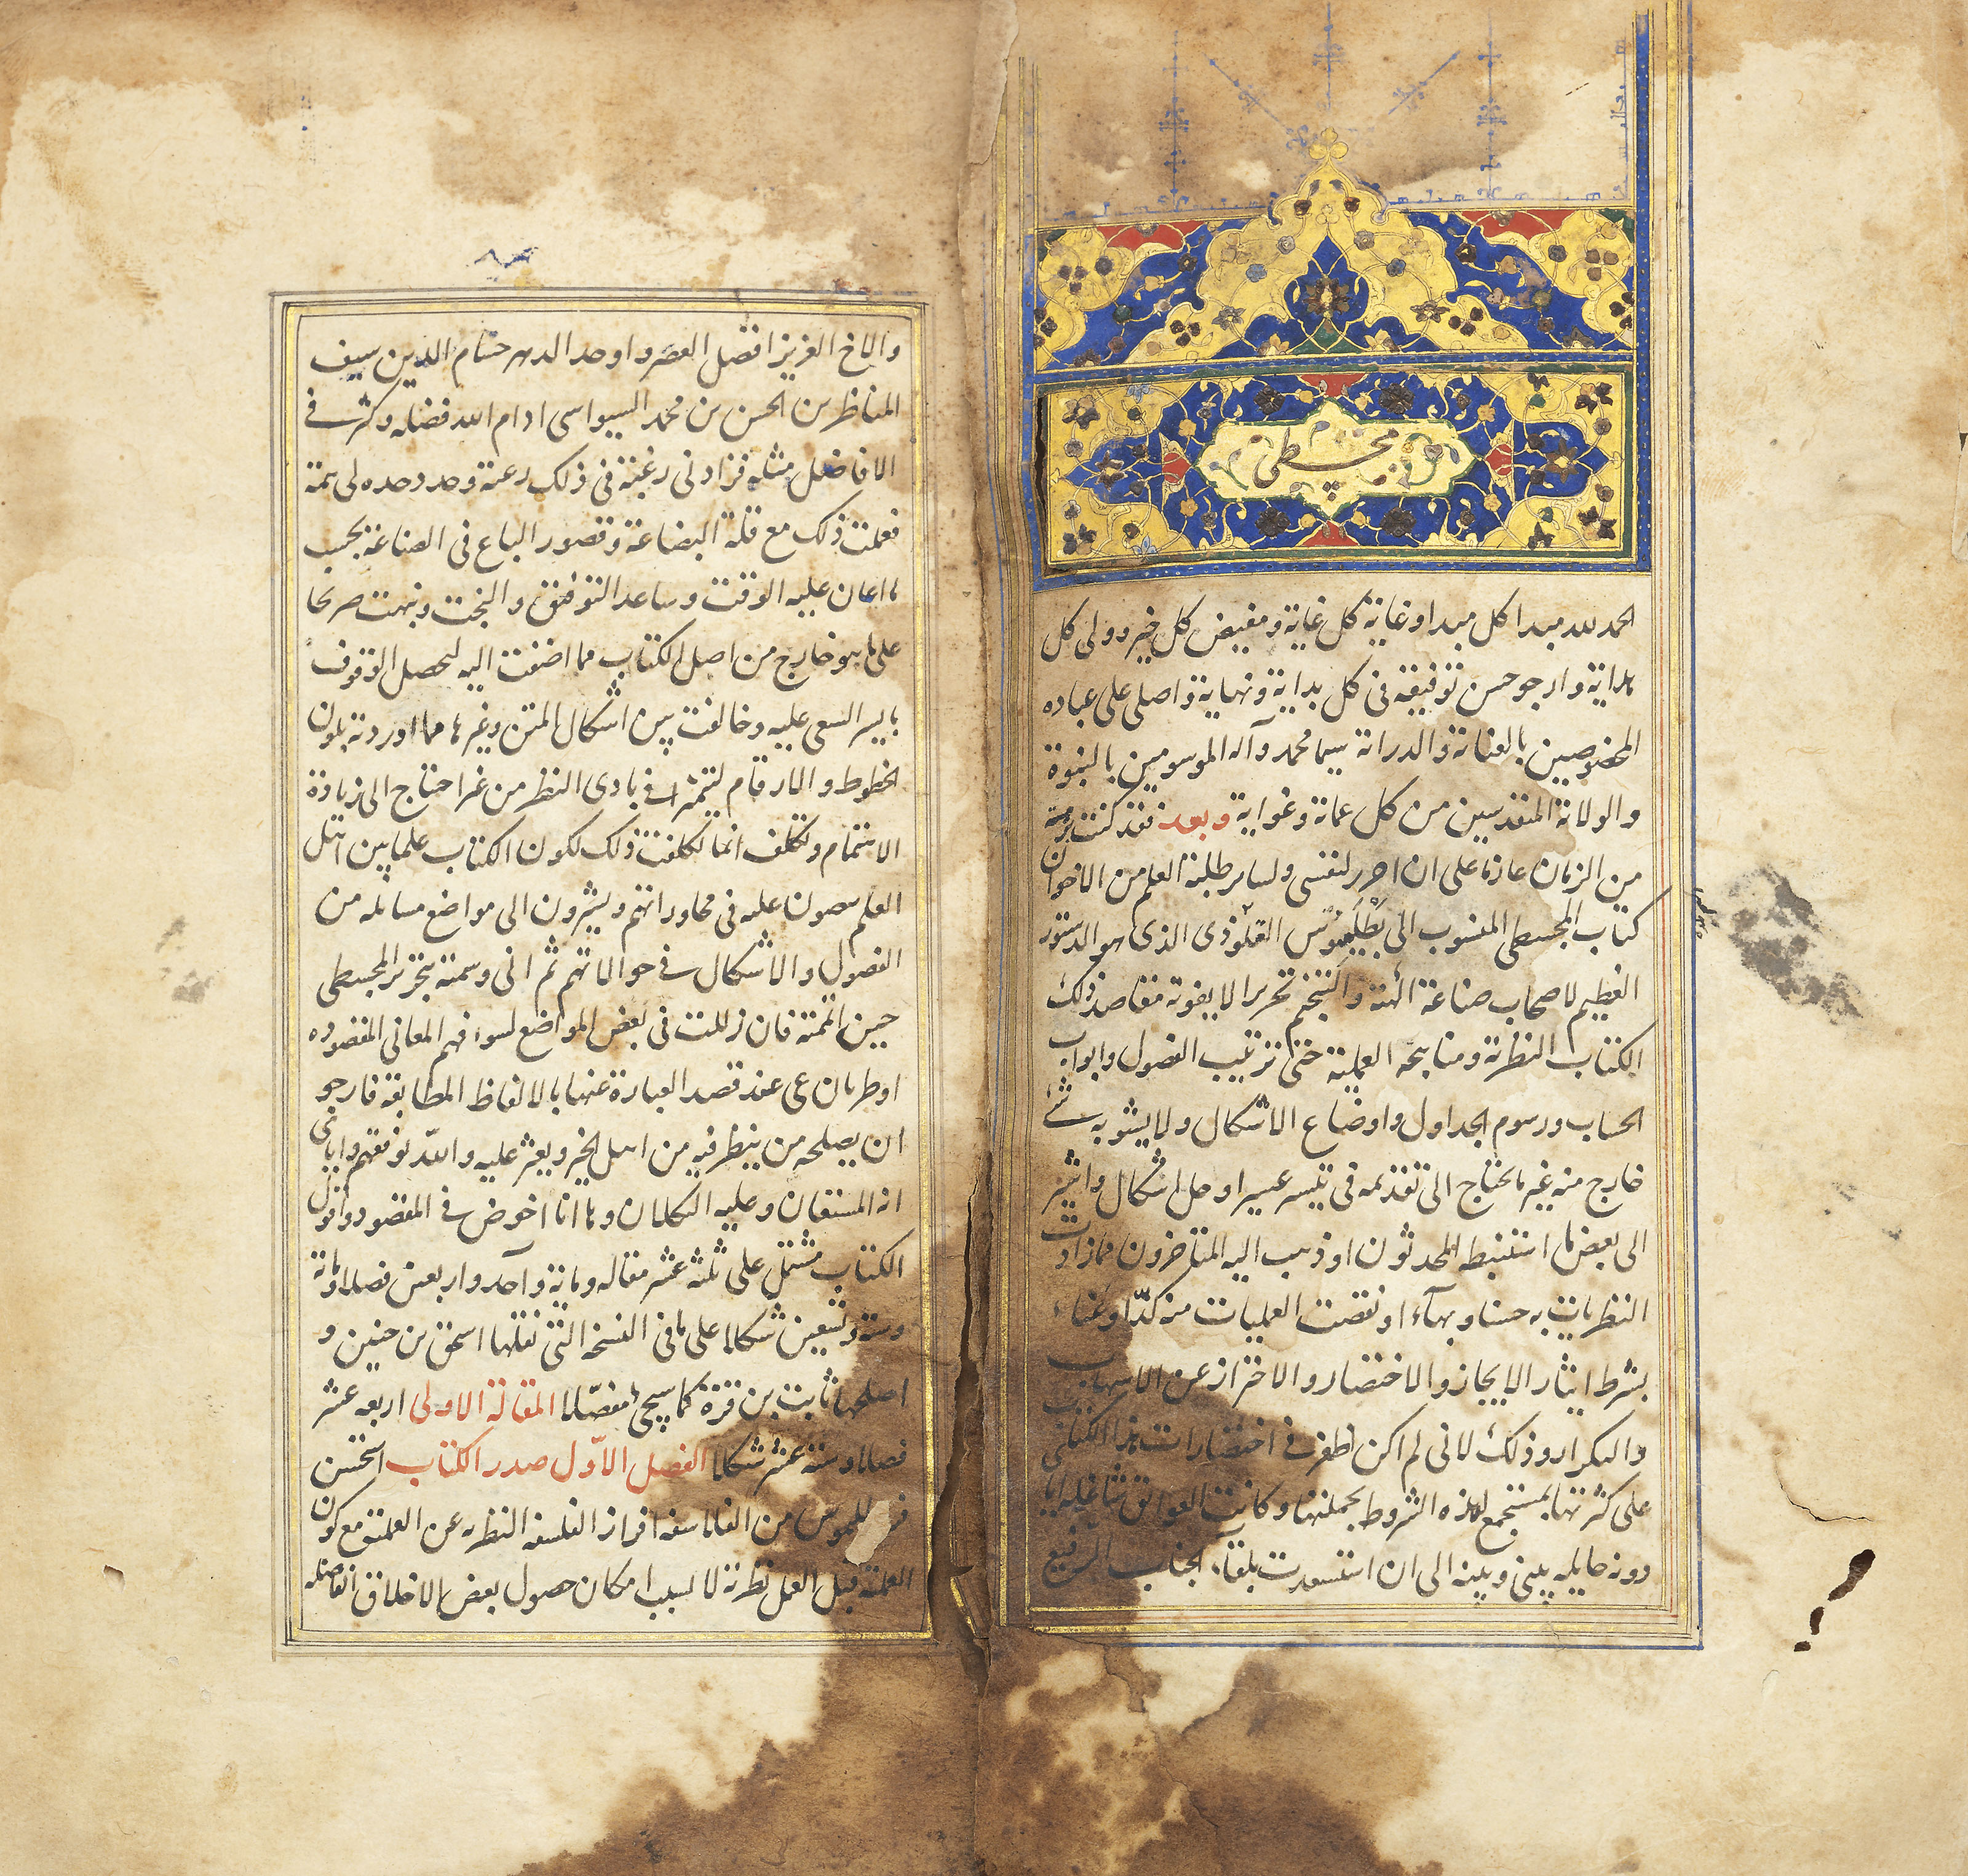 مجسطی
الحمد لله مبدا كل مبدا وغاية كل غاية ومفيض كل خير وولى كل
هداية وارجو حسن توفيقه فى كل بداية ونهاية واصلى على عباده
المخصوصين بالعناية والدراية سيما محمد وآله الموسومين بالنبوة
والولاية المقدسين من كل عماية وغواية وبعد فقد كنت برهة
من الزمان عازما على ان احرر لنفسى ولساير طلبة العلم من الاخوان
كتاب المجسطى المنسوب الى بطلميوس القلوذى الذى هو الدستور
العظيم لاصحاب صناعة الهيئة والتنجيم تحريرا لا يفوته مقاصد ذلك
الكتاب النظرية ومناهجه العملية حتى ترتيب الفصول وابواب
الحساب ورسوم الجداول واوضاع الاشكال ولا يشوبه شئ
خارج منه غير ما يحتاج الى تقديمه فى تيسير عسير او حل اشكال واشير
الى بعض ما استنبطه المحدثون او ذهب اليه المتاخرون مما زادت
النظريات به حسنا وبهآء او نقصت العمليات منه كدّا وعناء
بشرط ايثار الايجاز والاختصار والاحتراز عن الاسهاب
والتكرار وذلك لانى لم اكن اظفر فى اختصارات هذا الكتاب
على كثرتها بمستجمع لهذه الشروط بجملتها وكانت العوائق
دونه حايله بينى وبينه الى ان استسعدت بلقآء الجناب الرفيع
والاخ العزيز افضل العصر واوحد الدهر حسام الدين سيف
المناظرين الحسن بن محمد السيواسى ادام الله فضله وكثر فى
الافاضل مثله فزادنى رغبته فى ذلك رغبة وجد وحده لى همة
فعملت ذلك مع قلة البضاعة وقصور الباع فى الصناعة بحسب
ما اعان عليه الوقت وساعد التوفيق والبخت ونبهت صريحا
على ما هو خارج من اصل الكتاب مما اضفت اليه ليحصل الوقوف
بايسر السعى عليه وخالفت بين اشكال المتن وغيرها مما اوردته بلون
الخطوط والارقام لتتميز فى بادى النظر من غير احتياج الى زيادة
الاهتمام وتكلف انما تكلفت ذلك لكون الكتاب علما بين اهل
العلم ينصون عليه فى محاوراتهم ويشيرون الى مواضع مسايله من
الفصول والاشكال فى حوالاتهم ثم انى وسمته بتحرير المجسطى
حين اتممته فان زللت فى بعض المواضع لسوء فهم المعانى المقصوده
او طريان عى عند قصد العبارة عنها بالالفاظ المطابقة فارجو
ان يصلحه من ينظر فيه من اهل الخير ويعثر عليه والله يوفقهم واياى
انه المستعان وعليه التكلان وها انا اخوض فى المقصود واقول
الكتاب مشتمل على ثلثة عشر مقاله ومائة واحد واربعين فصلا ومائة
وستة وتسعين شكلا على ما فى النسخه التى نقلها اسحق بن حنين و
اصلحها ثابت بن قرة كما سيجئ مفصّلا المقالة الاولى اربعه عشر
فصلا وستة عشر شكلا الفصل الاوّل صدر الكتاب استحسن
بطلميوس من الفلاسفه افراز الفلسفه النظريه عن العملية مع كون
العملية قبل العمل نظرية لا لسبب امكان حصول بعض الاخلاق الفاضله